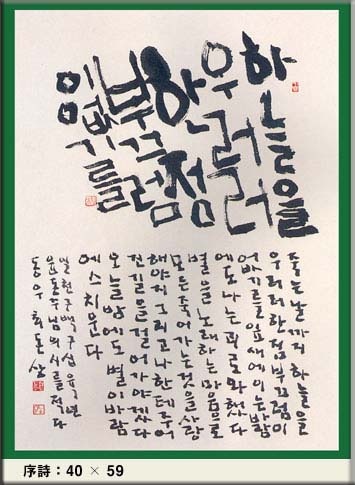 하늘을
우러러
한점
부끄럼
없기를
죽는날까지 하늘을
우러러 한점 부끄럼이
없기를 잎새에 이는 바람
에도 나는 괴로와 했다
별을 노래하는 마음으로
모든 죽어가는 것을 사랑
해야지 그리고 나한테 주어
진 길을 걸어가야겠다
오늘밤에도 별이 바람
에 스치운다
일천구백구십육년
윤동주님의 시를 적다
동우 최돈상
序詩：40 × 59